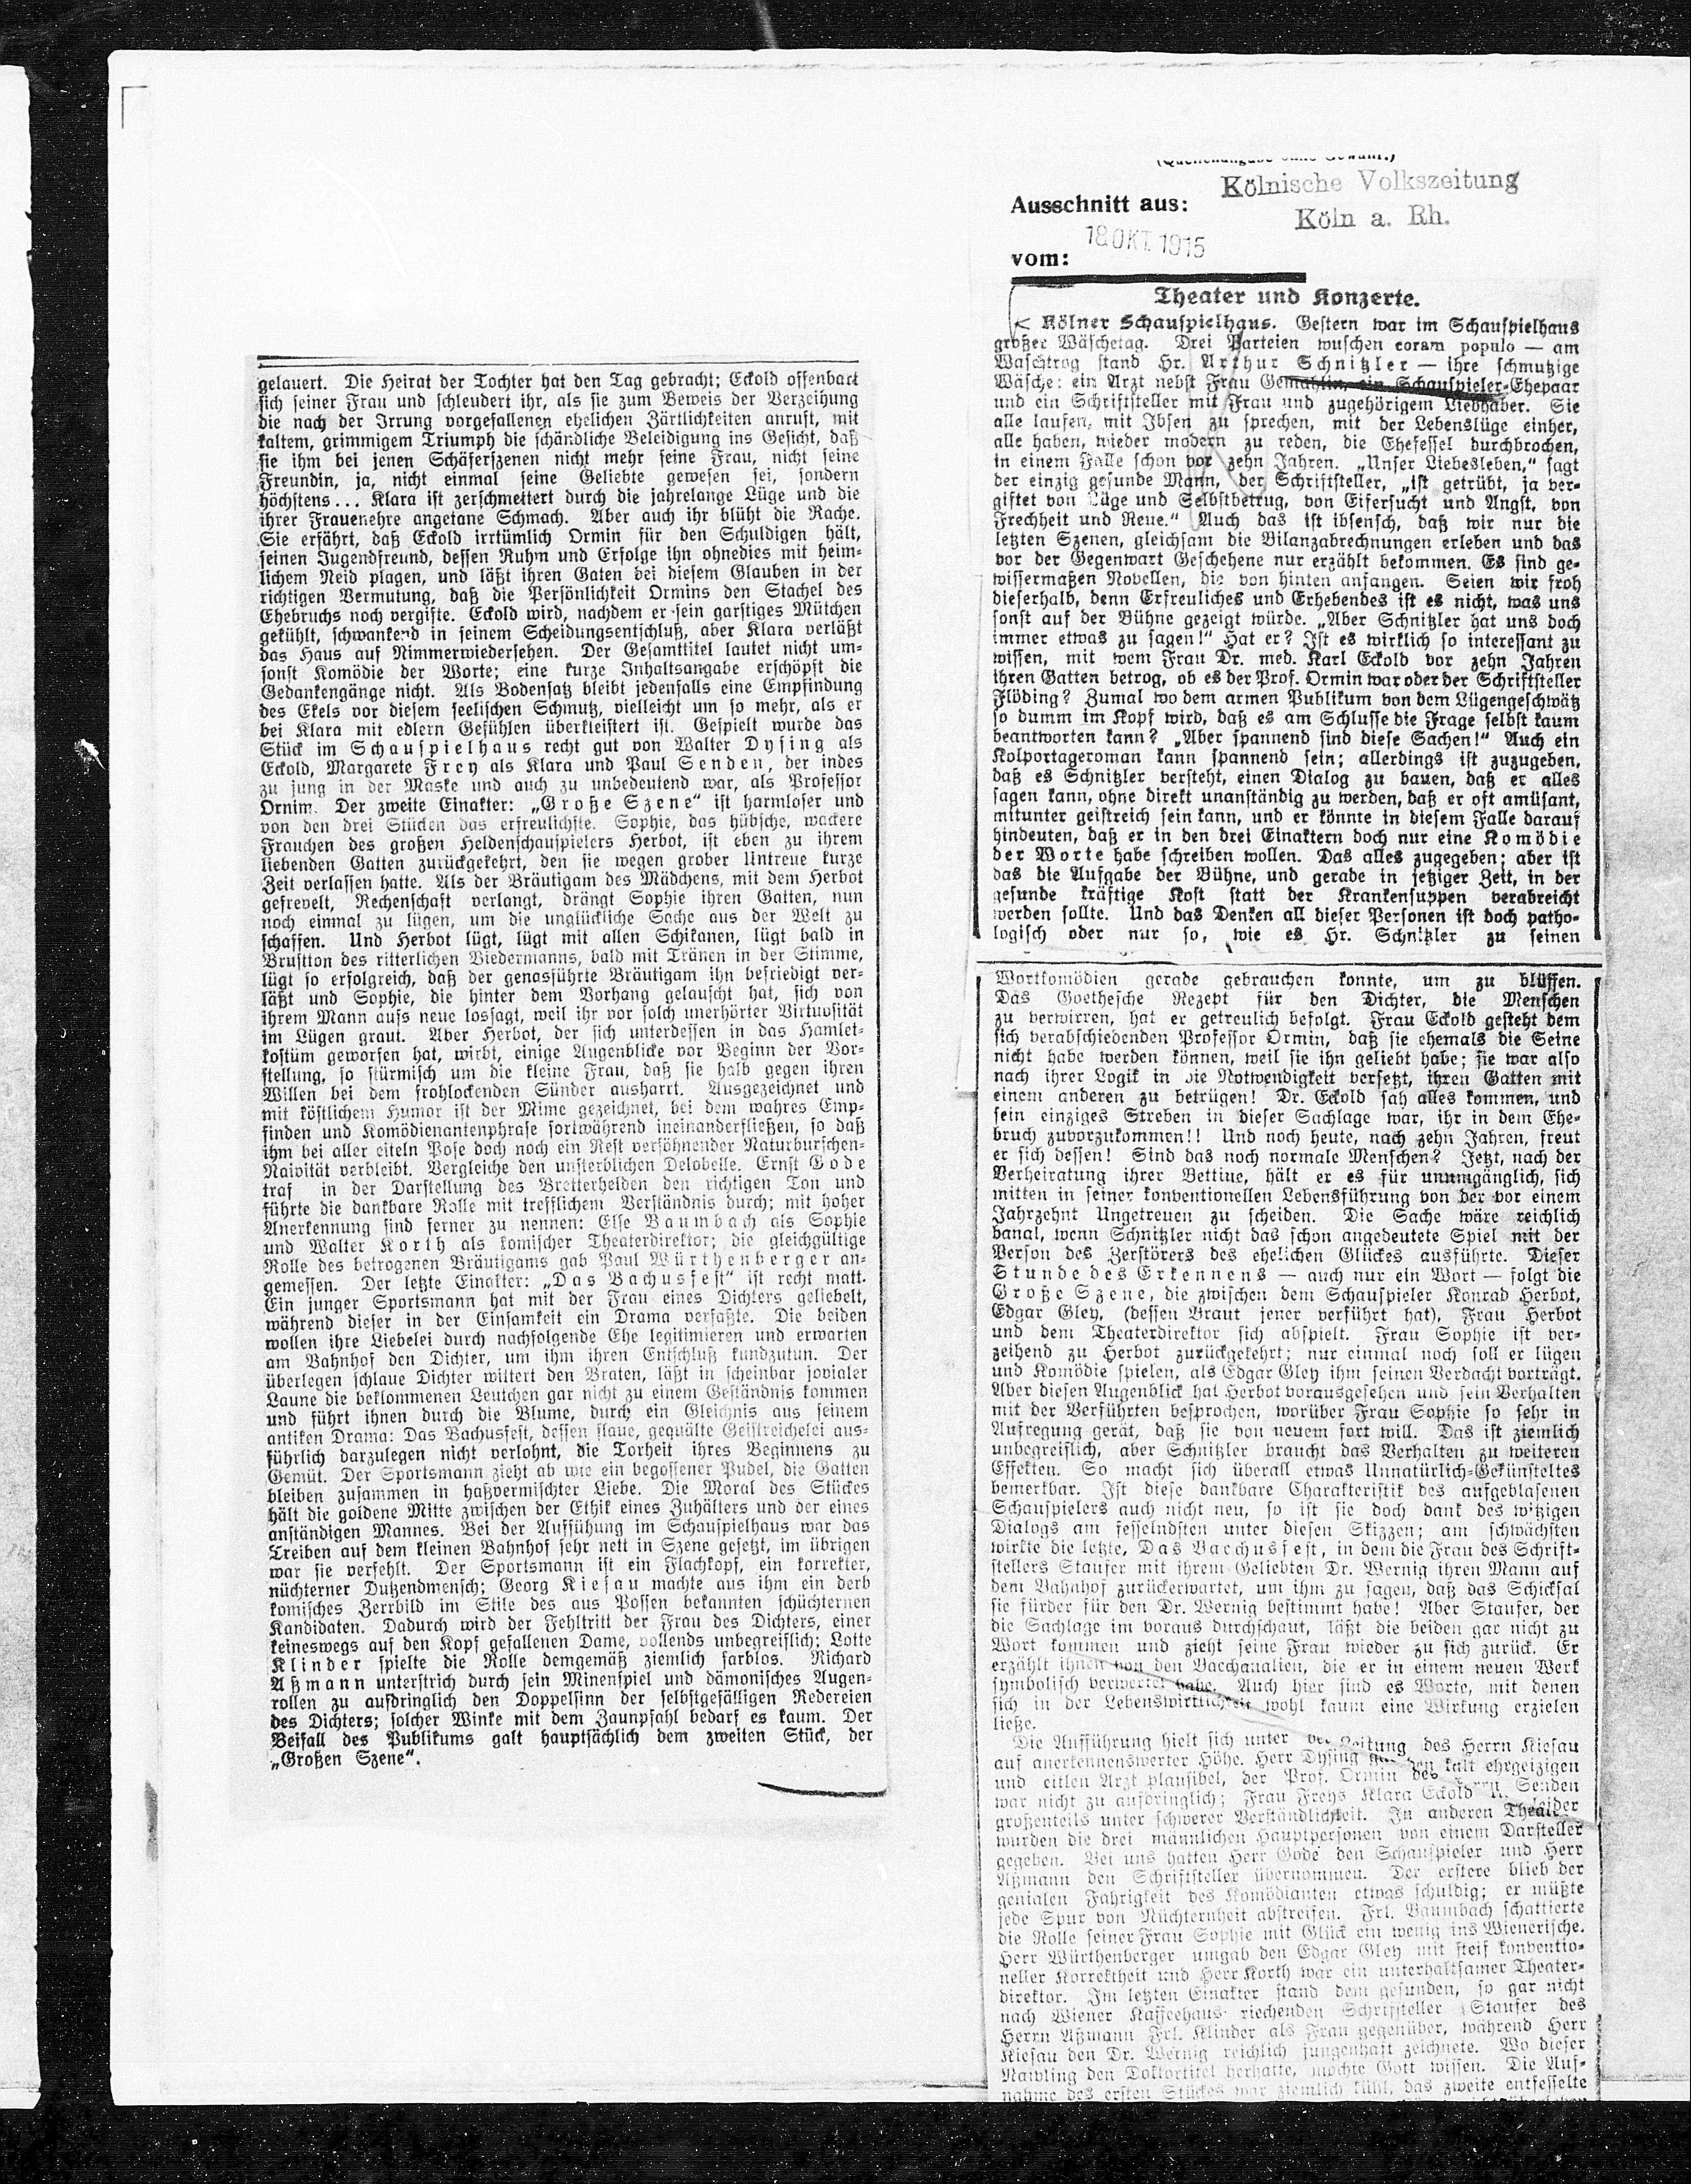 gelauert. Die Heirat der Tochter hat den Tag gebracht; Eckold offenbart
sich seiner Frau und schleudert ihr, als sie zum Beweis der Verzeihung
die nach der Irrung vorgefallenen ehelichen Zärtlichkeiten anruft, mit
kaltem, grimmigem Triumph die schändliche Beleidigung ins Gesicht, daß
sie ihm bei jenen Schäferszenen nicht mehr seine Frau, nicht seine
Freundin, ja, nicht einmal seine Geliebte gewesen sei, sondern
höchstens... Klara ist zerschmettert durch die jahrelange Lüge und die
ihrer Frauenehre angetane Schmach. Aber auch ihr blüht die Rache.
Sie erfährt, daß Eckold irrtümlich Ormin für den Schuldigen hält,
seinen Jugendfreund, dessen Ruhm und Erfolge ihn ohnedies mit heim-
lichem Neid plagen, und läßt ihren Gaten bei diesem Glauben in der
richtigen Vermutung, daß die Persönlichkeit Ormins den Stachel des
Ehebruchs noch vergifte. Eckold wird, nachdem er sein garstiges Mütchen
gekühlt, schwankend in seinem Scheidungsentschluß, aber Klara verläßt
das Haus auf Nimmerwiedersehen. Der Gesamttitel lautet nicht um-
sonst Komödie der Worte; eine kurze Inhaltsangabe erschöpft die
Gedankengänge nicht. Als Bodensatz bleibt jedenfalls eine Empfindung
des Ekels vor diesem seelischen Schmutz, vielleicht um so mehr, als er
bei Klara mit edlern Gefühlen überkleistert ist. Gespielt wurde das
Stück im Schauspielhaus recht gut von Walter Dysing als
Eckold, Margarete Frey als Klara und Paul Senden, der indes
zu jung in der Maske und auch zu unbedeutend war, als Professor
Ornim. Der zweite Einakter: „Große Szene“ ist harmloser und
von den drei Stücken das erfreulichste. Sophie, das hübsche, wackere
Frauchen des großen Heldenschauspielers Herbot, ist eben zu ihrem
liebenden Gatten zurückgekehrt, den sie wegen grober Untreue kurze
Zeit verlassen hatte. Als der Bräutigam des Mädchens, mit dem Herbot
gefrevelt, Rechenschaft verlangt, drängt Sophie ihren Gatten, nun
noch einmal zu lügen, um die unglückliche Sache aus der Welt zu
schaffen. Und Herbot lügt, lügt mit allen Schikanen, lügt bald in
Brustton des ritterlichen Biedermanns, bald mit Tränen in der Stimme,
lügt so erfolgreich, daß der genasführte Bräutigam ihn befriedigt ver-
läßt und Sophie, die hinter dem Vorhang gelauscht hat, sich von
ihrem Mann aufs neue lossagt, weil ihr vor solch unerhörter Virtuosität
im Lügen graut. Aber Herbot, der sich unterdessen in das Hamlet-
kostüm geworfen hat, wirbt, einige Augenblicke vor Beginn der Vor-
stellung, so stürmisch um die kleine Frau, daß sie halb gegen ihren
Willen bei dem frohlockenden Sünder ausharrt. Ausgezeichnet und
mit köstlichem Humor ist der Mime gezeichnet, bei dem wahres Emp-
finden und Komödienantenphrase fortwährend ineinanderfließen, so daß
ihm bei aller eiteln Pose doch noch ein Rest versöhnender Naturburschen-
Naivität verbleibt. Vergleiche den unsterblichen Delobelle. Ernst Gode
traf in der Darstellung des Bretterhelden den richtigen Ton und
führte die dankbare Rolle mit trefflichem Verständnis durch; mit hoher
Anerkennung sind ferner zu nennen: Else Baumbach als Sophie
und Walter Korth als komischer Theaterdirektor; die gleichgültige
Rolle des betrogenen Bräutigams gab Paul Würthenberger an-
gemessen. Der letzte Einakter: „Das Bachusfest“ ist recht matt.
Ein junger Sportsmann hat mit der Frau eines Dichters geliebelt,
während dieser in der Einsamkeit ein Drama verfaßte. Die beiden
wollen ihre Liebelei durch nachfolgende Ehe legitimieren und erwarten
am Bahnhof den Dichter, um ihm ihren Entschluß kundzutun. Der
überlegen schlaue Dichter wittert den Braten, läßt in scheinbar jovialer
Laune die beklommenen Leutchen gar nicht zu einem Geständnis kommen
und führt ihnen durch die Blume, durch ein Gleichnis aus seinem
antiken Drama: Das Bachusfest, dessen flaue, gequälte Geistreichelei aus-
führlich darzulegen nicht verlohnt, die Torheit ihres Beginnens zu
Gemüt. Der Sportsmann zieht ab wie ein begossener Pudel, die Gatten
bleiben zusammen in haßvermischter Liebe. Die Moral des Stückes
hält die goldene Mitte zwischen der Ethik eines Zuhälters und der eines
anständigen Mannes. Bei der Auffühung im Schauspielhaus war das
Treiben auf dem kleinen Bahnhof sehr nett in Szene gesetzt, im übrigen
war sie verfehlt. Der Sportsmann ist ein Flachkopf, ein korrekter,
nüchterner Dutzendmensch; Georg Kiesau machte aus ihm ein derb
komisches Zerrbild im Stile des aus Possen bekannten schüchternen
Kandidaten. Dadurch wird der Fehltritt der Frau des Dichters, einer
keineswegs auf den Kopf gefallenen Dame, vollends unbegreiflich; Lotte
Klinder spielte die Rolle demgemäß ziemlich farblos. Richard
Aßmann unterstrich durch sein Minenspiel und dämonisches Augen-
rollen zu aufdringlich den Doppelsinn der selbstgefälligen Redereien
des Dichters; solcher Winke mit dem Zaunpfahl bedarf es kaum. Der
Beifall des Publikums galt hauptsächlich dem zweiten Stück, der
„Großen Szene“.
Ausschnitt aus: Kölnische Volkszeitung
Köln a. Rh.
vom: 18 OKT. 1915
Theater und Konzerte.
< Kölner Schauspielhaus. Gestern war im Schauspielhaus
großer Wäschetag. Drei Parteien wuschen coram populo — am
Waschtrog stand Hr. Arthur Schnitzler — ihre schmutzige
Wäsche: ein Arzt nebst Frau Gemahlin, ein Schauspieler-Ehepaar
und ein Schriftsteller mit Frau und zugehörigem Liebhaber. Sie
alle laufen, mit Ibsen zu sprechen, mit der Lebenslüge einher,
alle haben, wieder modern zu reden, die Ehefessel durchbrochen,
in einem Falle schon vor zehn Jahren. „Unser Liebesleben,“ sagt
der einzig gesunde Mann, der Schriftsteller, „ist getrübt, ja ver-
giftet von Lüge und Selbstbetrug, von Eifersucht und Angst, von
Frechheit und Reue.“ Auch das ist ibsensch, daß wir nur die
letzten Szenen, gleichsam die Bilanzabrechnungen erleben und das
vor der Gegenwart Geschehene nur erzählt bekommen. Es sind ge-
wissermaßen Novellen, die von hinten anfangen. Seien wir froh
dieserhalb, denn Erfreuliches und Erhebendes ist es nicht, was uns
sonst auf der Bühne gezeigt würde. „Aber Schnitzler hat uns doch
immer etwas zu sagen!“ Hat er? Ist es wirklich so interessant zu
wissen, mit wem Frau Dr. med. Karl Eckold vor zehn Jahren
ihren Gatten betrog, ob es der Prof. Ormin war oder der Schriftsteller
Flöding? Zumal wo dem armen Publikum von dem Lügengeschwätz
so dumm im Kopf wird, daß es am Schlusse die Frage selbst kaum
beantworten kann? „Aber spannend sind diese Sachen!“ Auch ein
Kolportageroman kann spannend sein; allerdings ist zuzugeben,
daß es Schnitzler versteht, einen Dialog zu bauen, daß er alles
sagen kann, ohne direkt unanständig zu werden, daß er oft amüsant,
mitunter geistreich sein kann, und er könnte in diesem Falle darauf
hindeuten, daß er in den drei Einaktern doch nur eine Komödie
der Worte habe schreiben wollen. Das alles zugegeben; aber ist
das die Aufgabe der Bühne, und gerade in jetziger Zeit, in der
gesunde kräftige Kost statt der Krankensuppen verabreicht
werden sollte. Und das Denken all dieser Personen ist doch patho-
logisch oder nur so, wie es Hr. Schnitzler zu seinen
Wortkomödien gerade gebrauchen konnte, um zu blüffen.
Das Goethesche Rezept für den Dichter, die Menschen
zu verwirren, hat er getreulich befolgt. Frau Eckold gesteht dem
sich verabschiedenden Professor Ormin, daß sie ehemals die Seine
nicht habe werden können, weil sie ihn geliebt habe; sie war also
nach ihrer Logik in die Notwendigkeit versetzt, ihren Gatten mit
einem anderen zu betrügen! Dr. Eckold sah alles kommen, und
sein einziges Streben in dieser Sachlage war, ihr in dem Ehe-
bruch zuvorzukommen!! Und noch heute, nach zehn Jahren, freut
er sich dessen! Sind das noch normale Menschen? Jetzt, nach der
Verheiratung ihrer Bettine, hält er es für unumgänglich, sich
mitten in seiner konventionellen Lebensführung von der vor einem
Jahrzehnt Ungetreuen zu scheiden. Die Sache wäre reichlich
banal, wenn Schnitzler nicht das schon angedeutete Spiel mit der
Person des Zerstörers des ehelichen Glückes ausführte. Dieser
Stunde des Erkennens — auch nur ein Wort — folgt die
Große Szene, die zwischen dem Schauspieler Konrad Herbot,
Edgar Gley, (dessen Braut jener verführt hat), Frau Herbot
und dem Theaterdirektor sich abspielt. Frau Sophie ist ver-
zeihend zu Herbot zurückgekehrt; nur einmal noch soll er lügen
und Komödie spielen, als Edgar Gley ihm seinen Verdacht vorträgt.
Aber diesen Augenblick hat Herbot vorausgesehen und sein Verhalten
mit der Verführten besprochen, worüber Frau Sophie so sehr in
Aufregung gerät, daß sie von neuem fort will. Das ist ziemlich
unbegreiflich, aber Schnitzler braucht das Verhalten zu weiteren
Effekten. So macht sich überall etwas Unnatürlich-Gekünsteltes
bemerkbar. Ist diese dankbare Charakteristik des aufgeblasenen
Schauspielers auch nicht neu, so ist sie doch dank des witzigen
Dialogs am fesselndsten unter diesen Skizzen; am schwächsten
wirkte die letzte, Das Bacchusfest, in dem die Frau des Schrift-
stellers Staufer mit ihrem Geliebten Dr. Wernig ihren Mann auf
dem Bahnhof zurückerwartet, um ihm zu sagen, daß das Schicksal
sie fürder für den Dr. Wernig bestimmt habe! Aber Staufer, der
die Sachlage im voraus durchschaut, läßt die beiden gar nicht zu
Wort kommen und zieht seine Frau wieder zu sich zurück. Er
erzählt ihnen von den Bacchanalien, die er in einem neuen Werk
symbolisch verwertet habe. Auch hier sind es Worte, mit denen
sich in der Lebenswirklichkeit wohl kaum eine Wirkung erzielen
ließe.
Die Aufführung hielt sich unter der Leitung des Herrn Kiesau
auf anerkennenswerter Höhe. Herr Dysing den kalt ehrgeizigen
und eitlen Arzt plausibel, der Prof. Ormin des Herrn Senden
war nicht zu aufdringlich; Frau Freys Klara Eckold leider
großenteils unter schwerer Verständlichkeit. In anderen
wurden die drei männlichen Hauptpersonen von einem Darsteller
gegeben. Bei uns hatten Herr Gode den Schauspieler und Herr
Aßmann den Schriftsteller übernommen. Der erstere blieb der
genialen Fahrigkeit des Komödianten etwas schuldig; er müßte
jede Spur von Nüchternheit abstreifen. Frl. Baumbach schattierte
die Rolle seiner Frau Sophie mit Glück ein wenig ins Wienerische.
Herr Würthenberger umgab den Edgar Gley mit steif konventio-
neller Korrektheit und Herr Korth war ein unterhaltsamer Theater-
direktor. Im letzten Einakter stand dem gesunden, so gar nicht
nach Wiener Kaffeehaus riechenden Schriftsteller Staufer des
Herrn Aßmann Frl. Klinder als Frau gegenüber, während Herr
Kiesau den Dr. Wernig reichlich jungenhaft zeichnete. Wo dieser
Naivling den Doktortitel herhatte, mochte Gott wissen. Die Auf-
nahme des ersten Stückes war ziemlich kühl, das zweite entfesselte